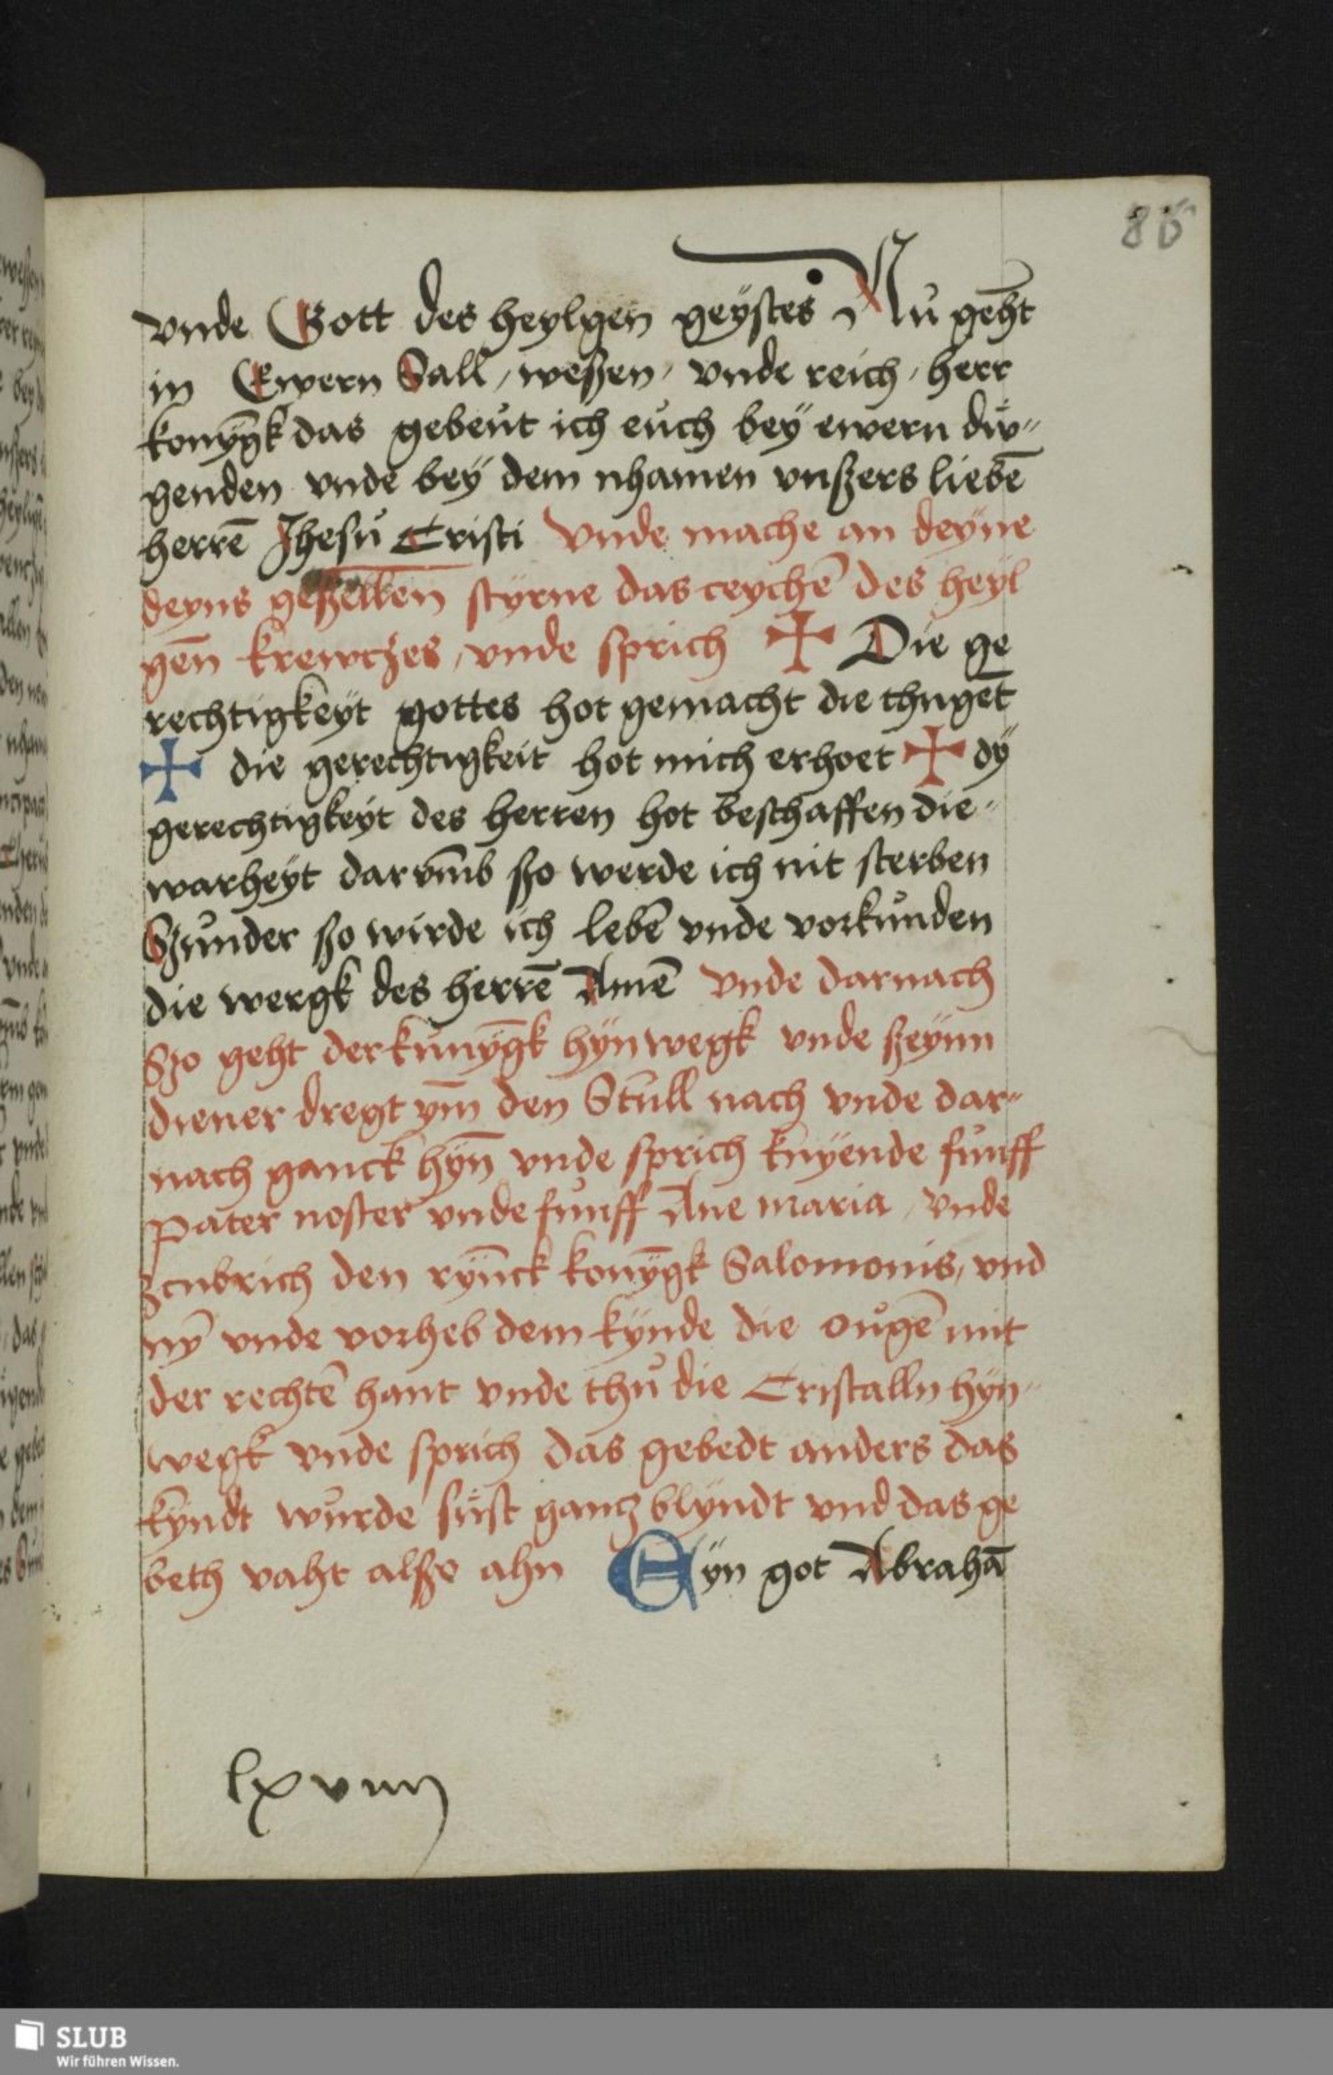 85
vnde Gott des heylgen geystes Nu̇ geht
in Ewern Sall, weßen, vnde reich, herr
konȳgk das gebeu̇t ich eu̇ch bey ewern du̇-
genden vnde bey dem nhamen vnßers liebē
herrē Jhesu̇ Cristi vnde mache an deyne
deyns geßellen styrne das ceychē des heyl
gēn krewczes, vnde sprich ✠ Die ge
rechtigkeyt gottes hot gemacht die thuget
✠ die gerechtigkeit hot mich erhoet ✠ dy
gerechtigkeyt des herren hot beschaffen die-
warheyt darv̄mb szo werde ich nit sterben
Szu̇nder szo wirde ich lebē vnde vorku̇nden
die wergk des herrē Amē vnde darnach
Szo geht der ku̇nȳgk hyn wegk vnde szeynn
diener dregt ym̄ den Stull nach vnde dar-
nach ganck hȳn vnde sprich knyende fu̇nff
Pater noster vnde fu̇nff Aue maria, vnde
Zcubrich den rȳnck konȳgk Salomonis, vnd
nȳ vnde vorheb dem kynde die ou̇gē mit
der rechtē hant vnde thu̇ die Cristalln hyn-
wegk vnde sprich das gebedt anders das
kyndt wu̇rde su̇st gancz blyndt vnd das ge
beth vaht alsze ahn Eyn got Abrahā
lxviiij
SLUB
Wir führen Wissen.